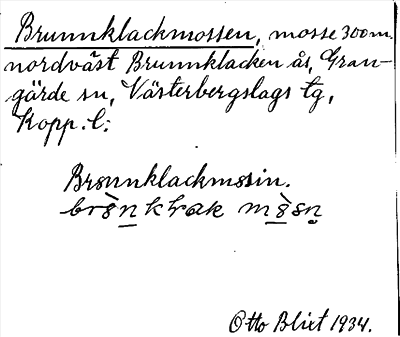 Brunnklackmossen, mosse 300 m.
nordväst Brunnklacken ås, Gran-
gärde sn, Västerbergslags tg,
Kopp. l:
Brønnklackmøssin.
Otto Blixt 1934.